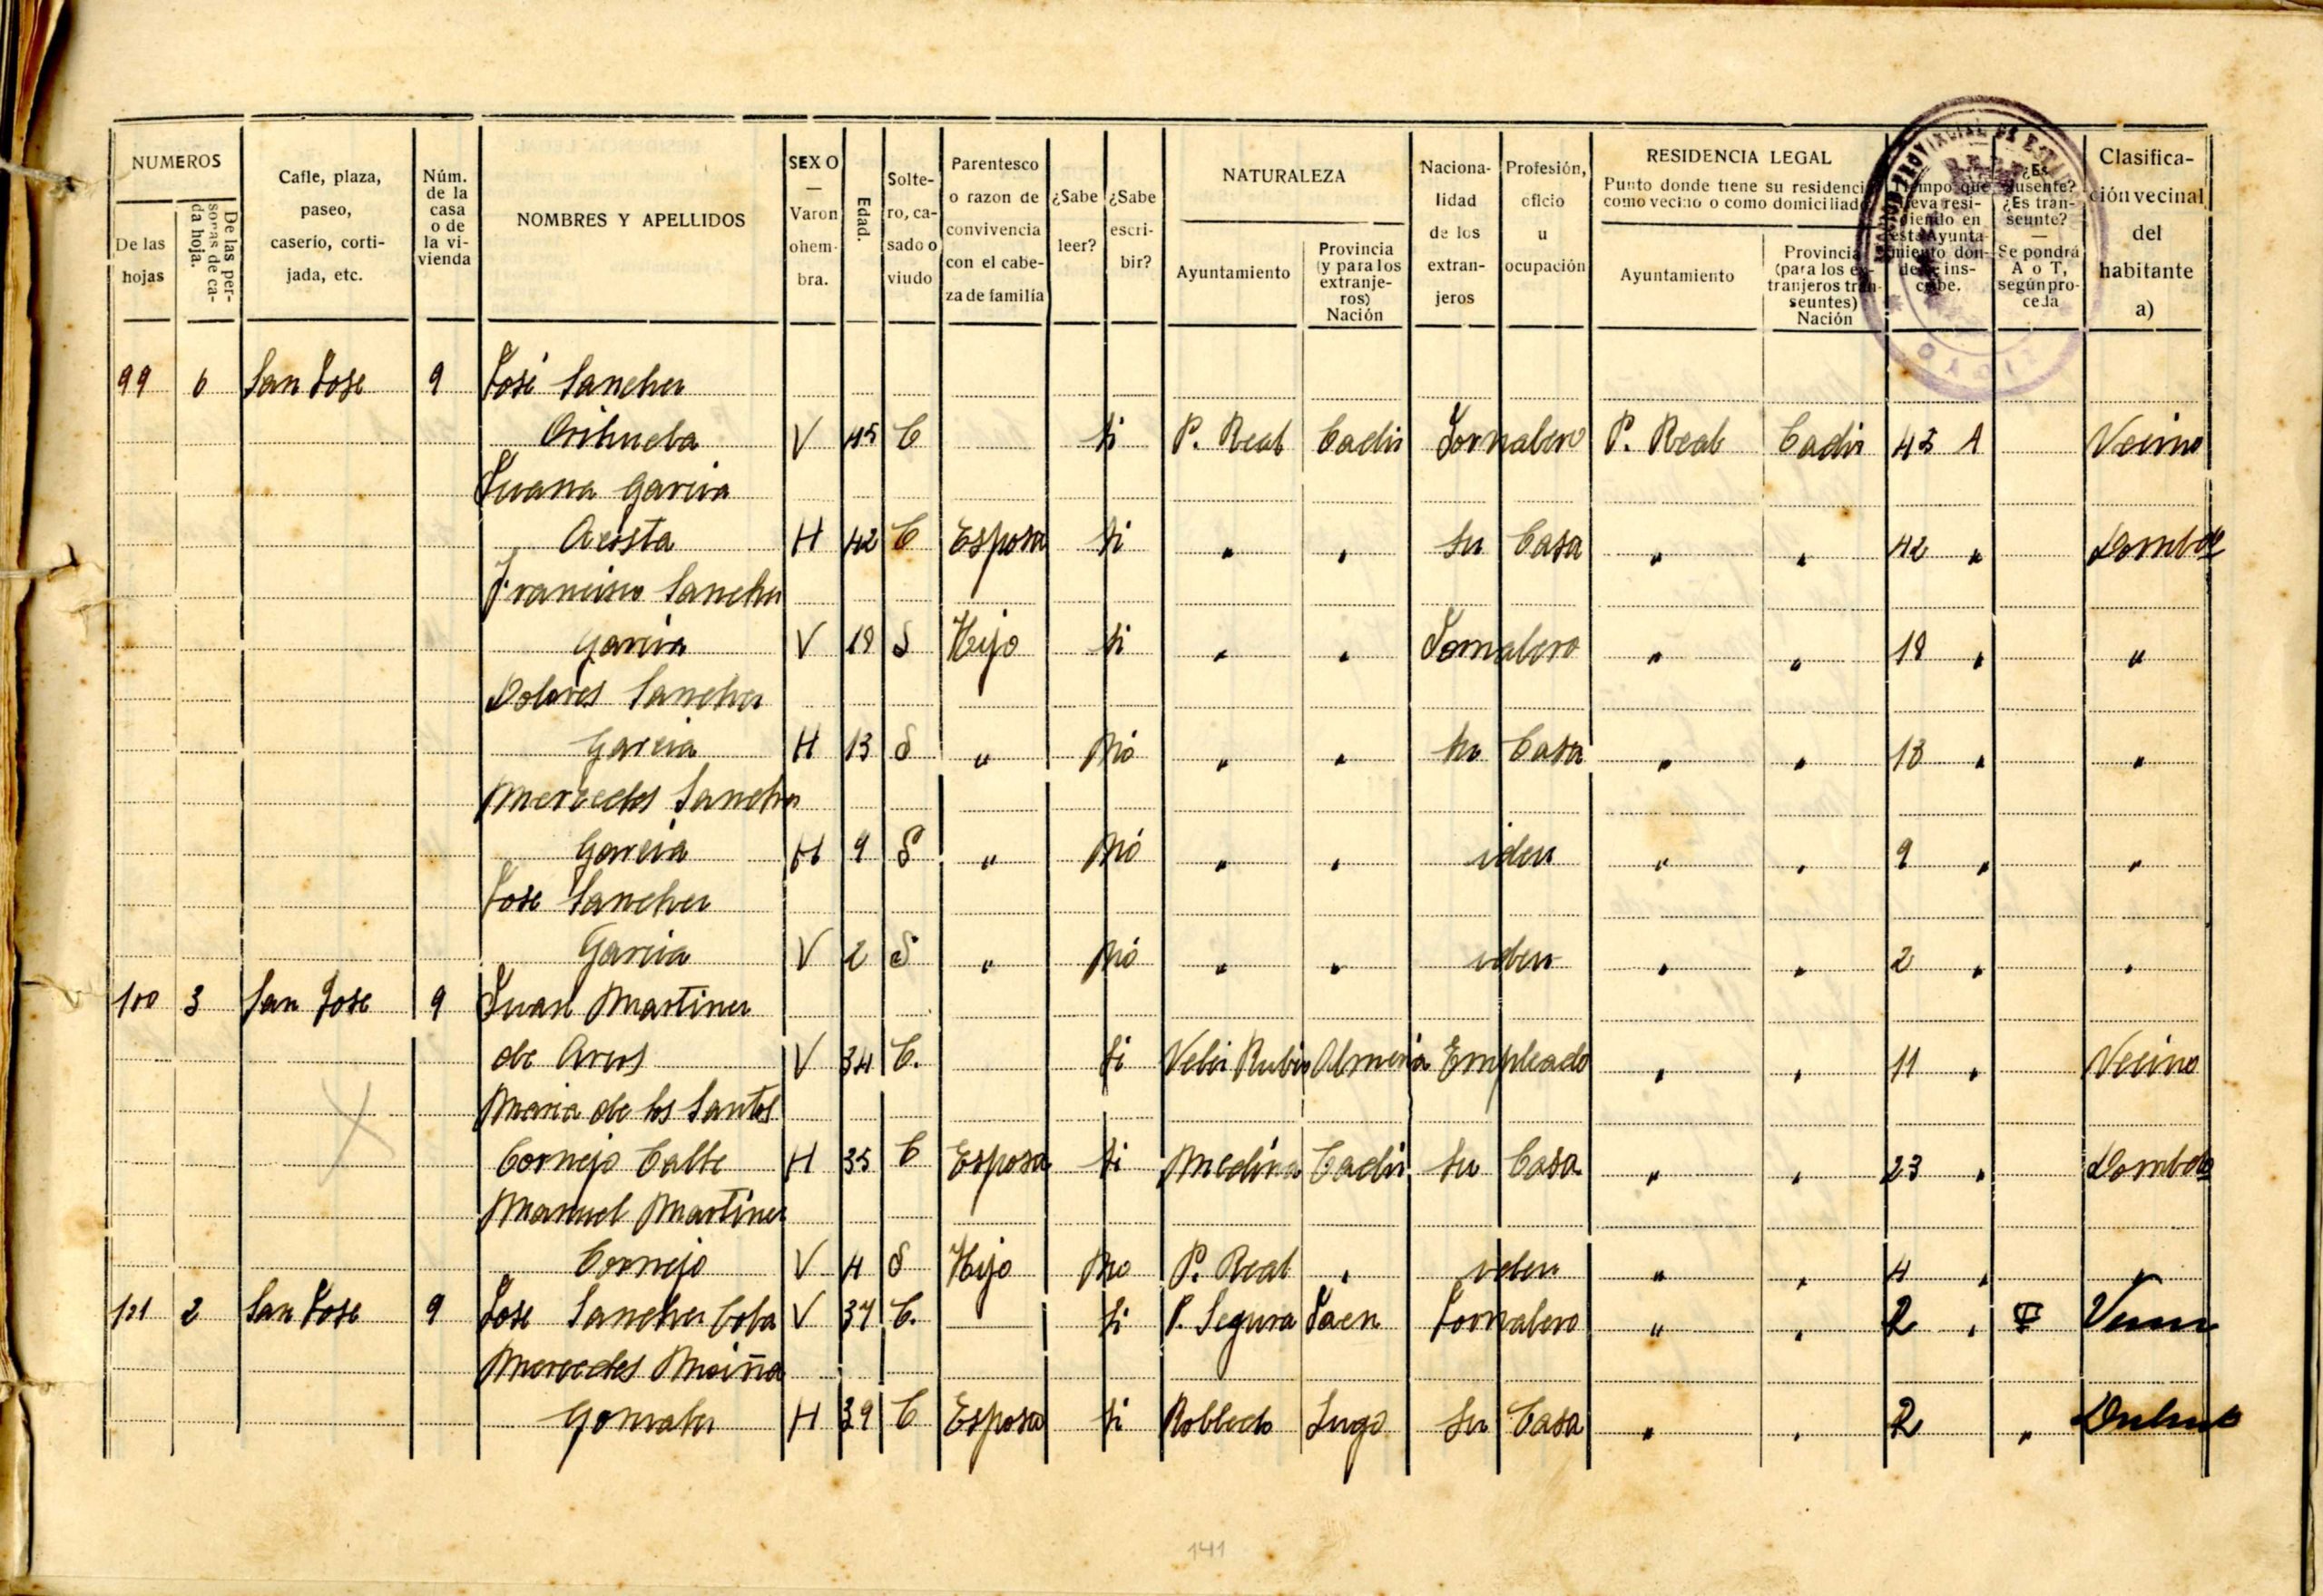 NUMEROS
De las hojas
De las personas de cada hoja.
Calle, plaza, paseo, caserío, cortijada, etc.
Núm. de la casa o de la vivienda
NOMBRES Y APELLIDOS
SEXO — Varon o hembra.
Edad.
Soltero, casado o viudo
Parentesco o razon de convivencia con el cabeza de familia
¿Sabe leer?
¿Sabe escribir?
NATURALEZA
Ayuntamiento
Provincia (y para los extranjeros) Nación
Nacionalidad de los extranjeros
Profesión, oficio u ocupación
RESIDENCIA LEGAL
Punto donde tiene su residencia como vecino o como domiciliado
Ayuntamiento
Provincia (para los extranjeros transeuntes) Nación
Tiempo que lleva residiendo en esta Ayuntamiento donde se inscribe.
¿Es ausente? ¿Es transeunte? — Se pondrá A o T, según proceda
Clasificación vecinal del habitante a)
99 6 San Jose 9 José Sanchez
Orihuela V 45 C si P. Real Cadiz Jornalero P. Real Cadiz 43 A Vecino
Juana Garcia
Acosta H 42 C Esposa si " " Su Casa " " 42 "
Francisco Sanchez
Garcia V 18 S Hijo si " " Jornalero " " 18 " "
Dolores Sanchez
Garcia H 13 S " No " " Su Casa " " 13 " "
Mercedes Sanchez
Garcia H 9 S " No " " iden " " 9 " "
Jose Sanchez
Garcia V 2 S " No " " iden " " 2 " "
100 3 San Jose 9 Juan Martinez
de Arcos V 34 C. si Velez Rubio Almeria Empleado " " 11 " Vecino
Maria de los Santos
Cornejo Calle H 35 C Esposa si Medina Cadiz Su Casa " " 23 "
Manuel Martinez
Cornejo V 4 S Hijo No P. Real " iden " " 4 " "
101 2 San Jose 9 Jose Sanchez Coba V 37 C. — si P. Segura Jaen Jornalero " " 2 "
Mercedes
Gonzalez H 39 C Esposa si Robledo Lugo Su Casa " " 2 "
141